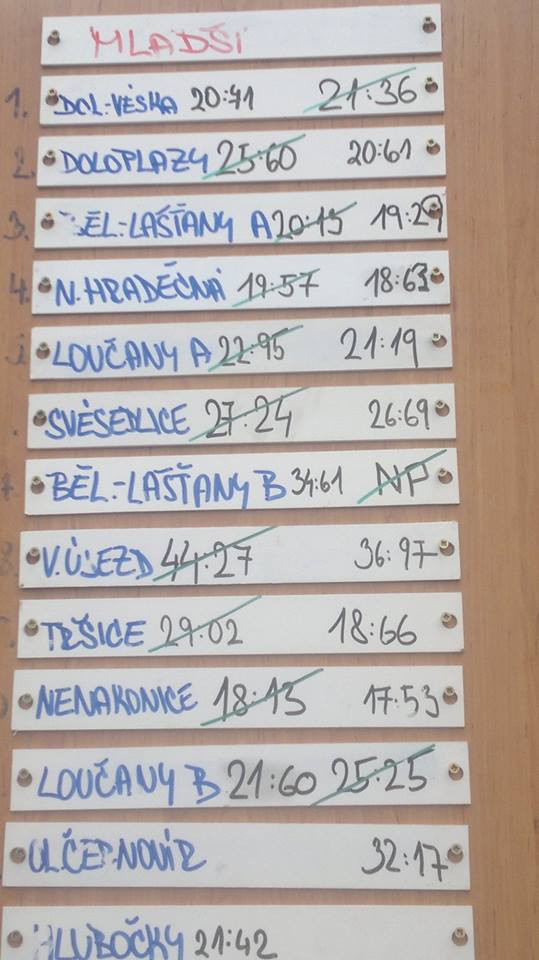 MLADŠÍ
1. DOL.-VÉSKA 20:41 21:36
2. DOLOPLAZY 25:60 20:61
3. BĚL-LAŠŤANY A 20:15 19:29
4. N.HRADEČNÁ 19:57 18:63
LOUČANY A 22:95 21:19
SVÉSEDLICE 27:24 26:69
BĚL.-LAŠŤANY B 34:61 NP
8. V.ÚJEZD 44:27 36:97
TRŠICE 29:02 18:66
NENAKONICE 18:13 17:53
LOUČANY B 21:60 25:25
32:17
HLUBOČKY 21:42